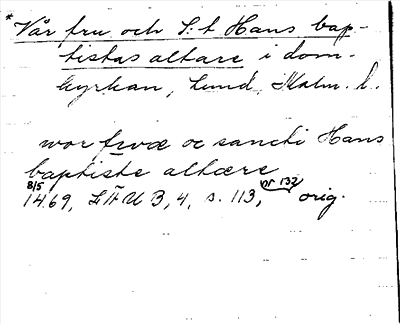 *Vår fru och S:t Hans bap-
tistas altare i dom-
kyrkan, Lund, Malm. l.
wor frvæ oc sancti Hans
baptiste altære
8/5 1469, LÄU B, 4, s. 113, nr 132 orig.